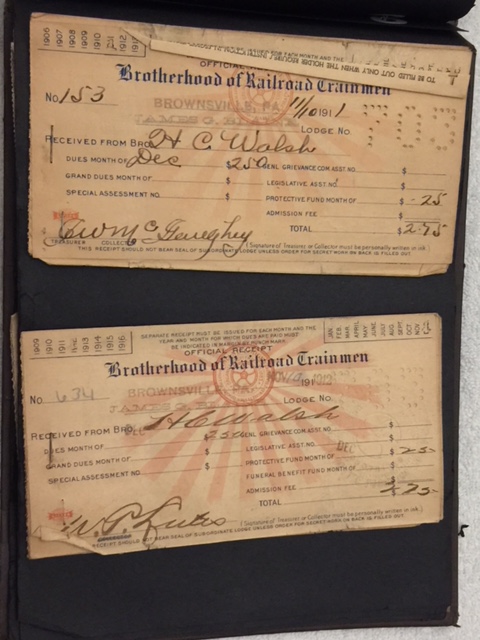 1906
1907
1908
1909
1910
1911
1912
TO BE FILLED OUT ONLY WHEN THE HOLDER
OFFICIAL
Brotherhood of Railroad Trainmen
No 153
BROWNSVILLE, PA. 11/10 1911
LODGE No.
Received from Bro. H C Walsh
DUES MONTH OF Dec $ 2.50 GENL GRIEVANCE COM. ASST. NO. $
GRAND DUES MONTH OF $ LEGISLATIVE ASST. NO. $
SPECIAL ASSESSMENT NO. $ PROTECTIVE FUND MONTH OF $ .25
ADMISSION FEE $
TOTAL $ 2.75
TREASURER COLLECTOR (Signature of Treasurer or Collector must be personally written in ink.)
THIS RECEIPT SHOULD NOT BEAR SEAL OF SUBORDINATE LODGE UNLESS ORDER FOR SECRET WORK ON BACK IS FILLED OUT.
1909
1910
1911
1912
1913
1914
1915
1916
SEPARATE RECEIPT MUST BE ISSUED FOR EACH MONTH AND THE
YEAR AND MONTH FOR WHICH DUES ARE PAID MUST
BE INDICATED IN MARGIN BY PUNCH MARK
JAN.
FEB.
MAR.
APR.
MAY
JUNE
JULY
AUG.
SEPT.
OCT.
NOV.
OFFICIAL RECEIPT
Brotherhood of Railroad Trainmen
No 634
BROWNSVILLE, PA. NOV 1912
LODGE No.
RECEIVED FROM BRO. H C Walsh
DUES MONTH OF DEC $ 2.50 GENL GRIEVANCE COM. ASST. NO. $
GRAND DUES MONTH OF $ LEGISLATIVE ASST. NO. $
SPECIAL ASSESSMENT NO. $ PROTECTIVE FUND MONTH OF Dec $ 25
FUNERAL BENEFIT FUND MONTH OF $
ADMISSION FEE $
TOTAL $ 2.75
(Signature of Treasurer or Collector must be personally written in ink.)
RECEIPT SHOULD NOT BEAR SEAL OF SUBORDINATE LODGE UNLESS ORDER FOR SECRET WORK ON BACK IS FILLED OUT.